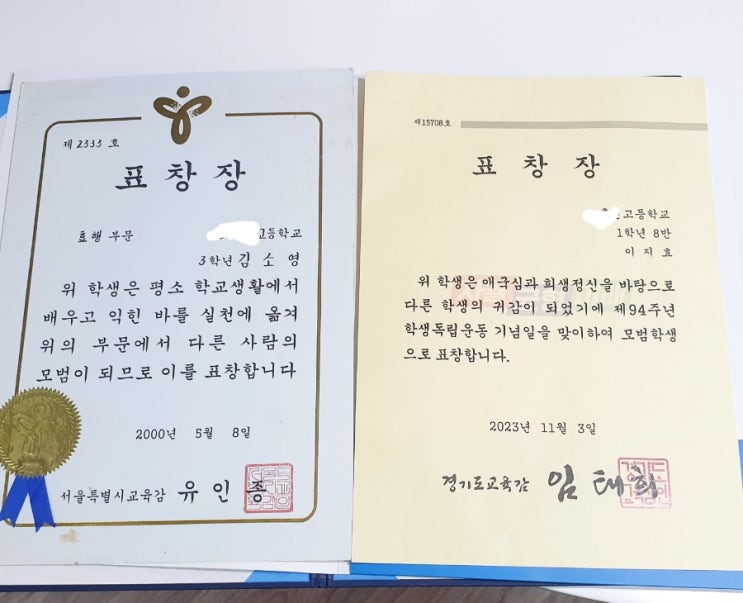 제 2333 호
표 창 장
효행 부문
고등학교
3학년 김 소 영
위 학생은 평소 학교생활에서
배우고 익힌 바를 실천에 옮겨
위의 부문에서 다른 사람의
모범이 되므로 이를 표창합니다
2000년 5월 8일
서울특별시교육감 유 인 종
제15708호
표 창 장
고등학교
1학년 8반
이 지 효
위 학생은 애국심과 희생정신을 바탕으로
다른 학생의 귀감이 되었기에 제94주년
학생독립운동 기념일을 맞이하여 모범학생
으로 표창합니다.
2023년 11월 3일
경기도교육감 임태희